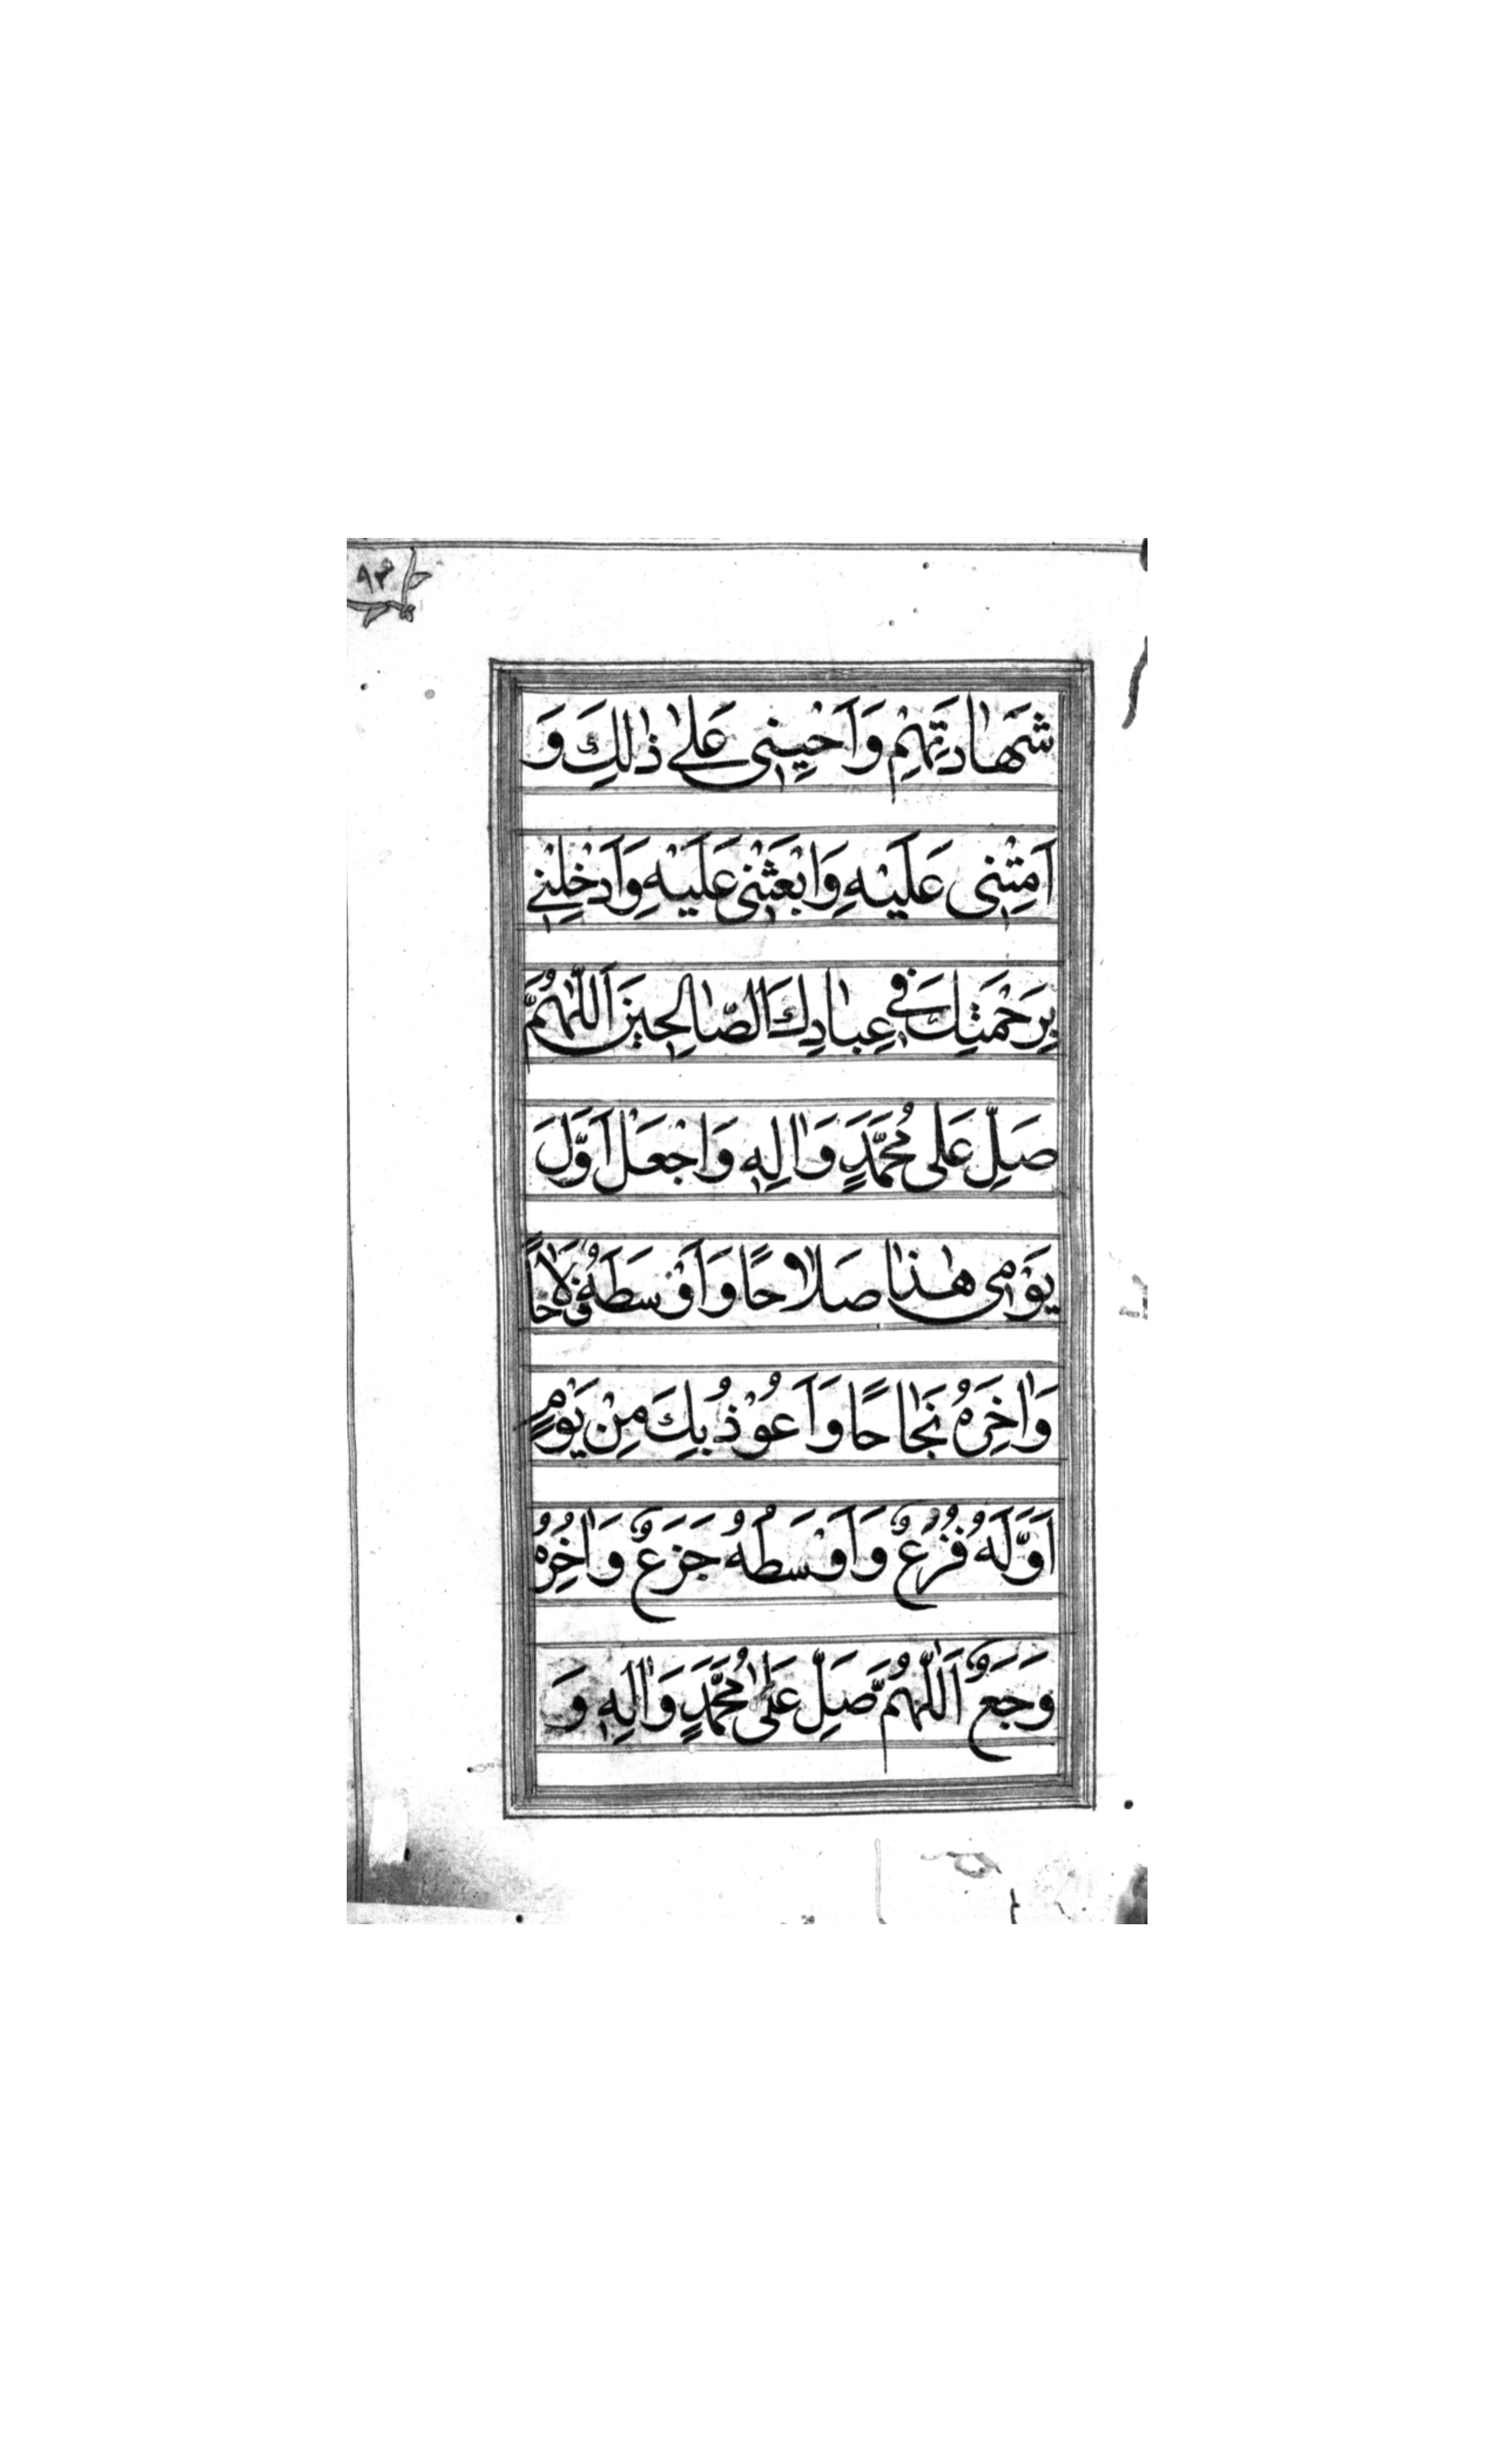 ۹۳
شَهٰادَتِهِمْ وَاَحْيِنِى عَلىٰ ذٰلِكَ وَ
اَمِتْنِى عَلَيْهِ وَابْعَثْنِى عَلَيْهِ وَاَدْخِلْنِى
بِرَحْمَتِكَ فِى عِبٰادِكَ الصّٰالِحِينَ اَللّٰهُمَّ
صَلِّ عَلى مُحَمَّدٍ وَاٰلِهِ وَاجْعَلْ اَوَّلَ
يَوْمِى هٰذٰا صَلاٰحًا وَاَوْسَطَهُ فَلاٰحًا
وَاٰخِرَهُ نَجٰاحًا وَاَعُوْذُ بِكَ مِنْ يَوْمٍ
اَوَّلُهُ فُزُعٌ وَاَوْسَطُهُ جَزَعٌ وَاٰخِرُهُ
وَجَعٌ اَللّٰهُمَّ صَلِّ عَلىٰ مُحَمَّدٍ وَاٰلِهِ وَ